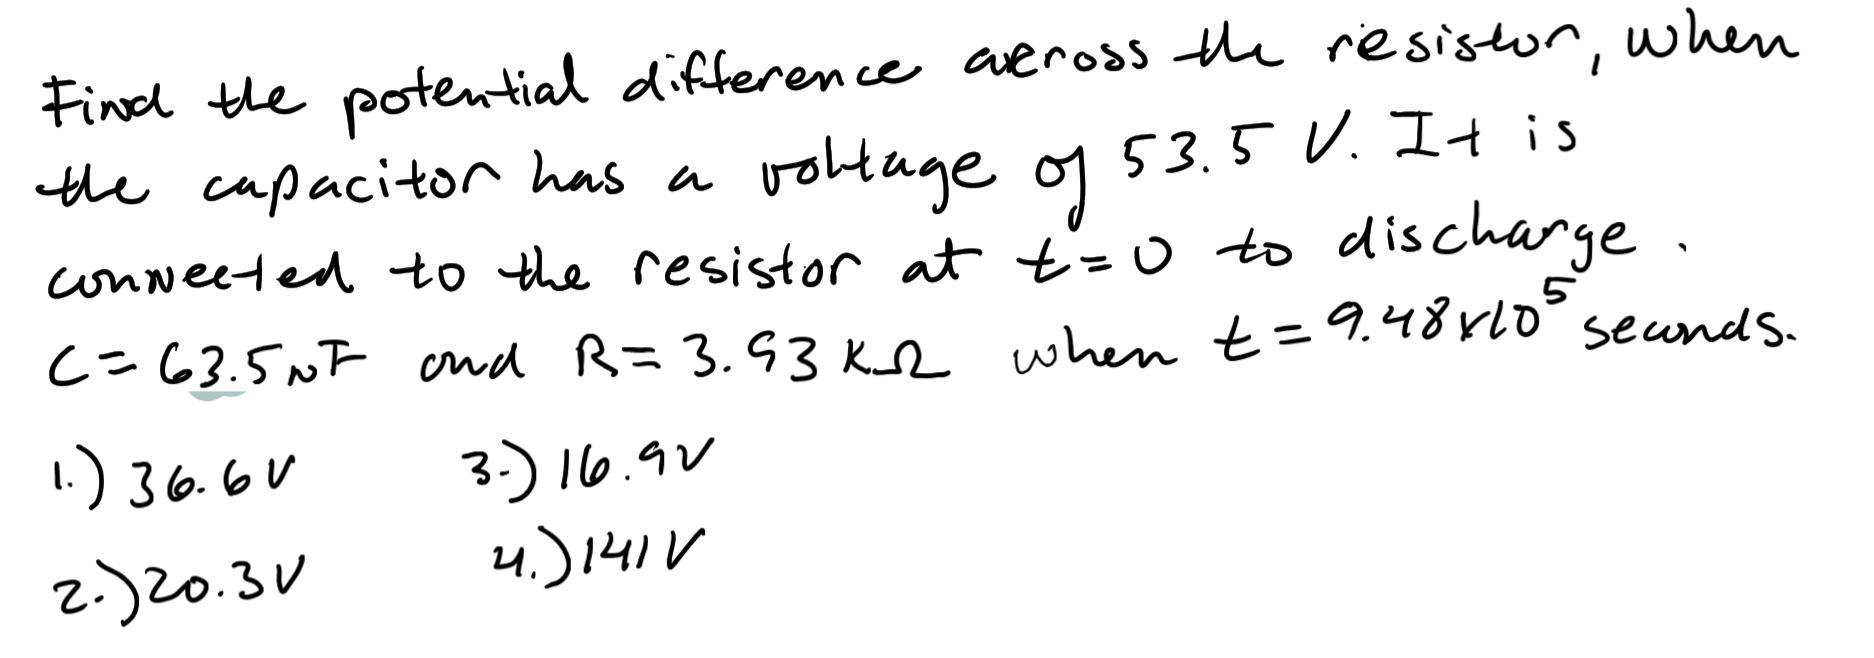 Find the potential difference across the resistor, when
the capacitor has a voltage of 53.5 V. It is
connected to the resistor at t=0 to discharge.
C = 63.5 nF and R = 3.93 kΩ when t = 9.48x10⁵ seconds.
1.) 36.6V 3.) 16.9V
2.) 20.3V 4.) 141V